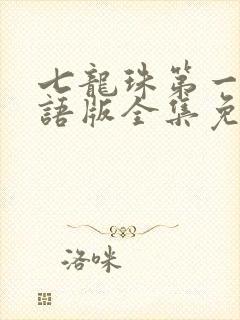 七龍珠第一
語版全集免
洛咪